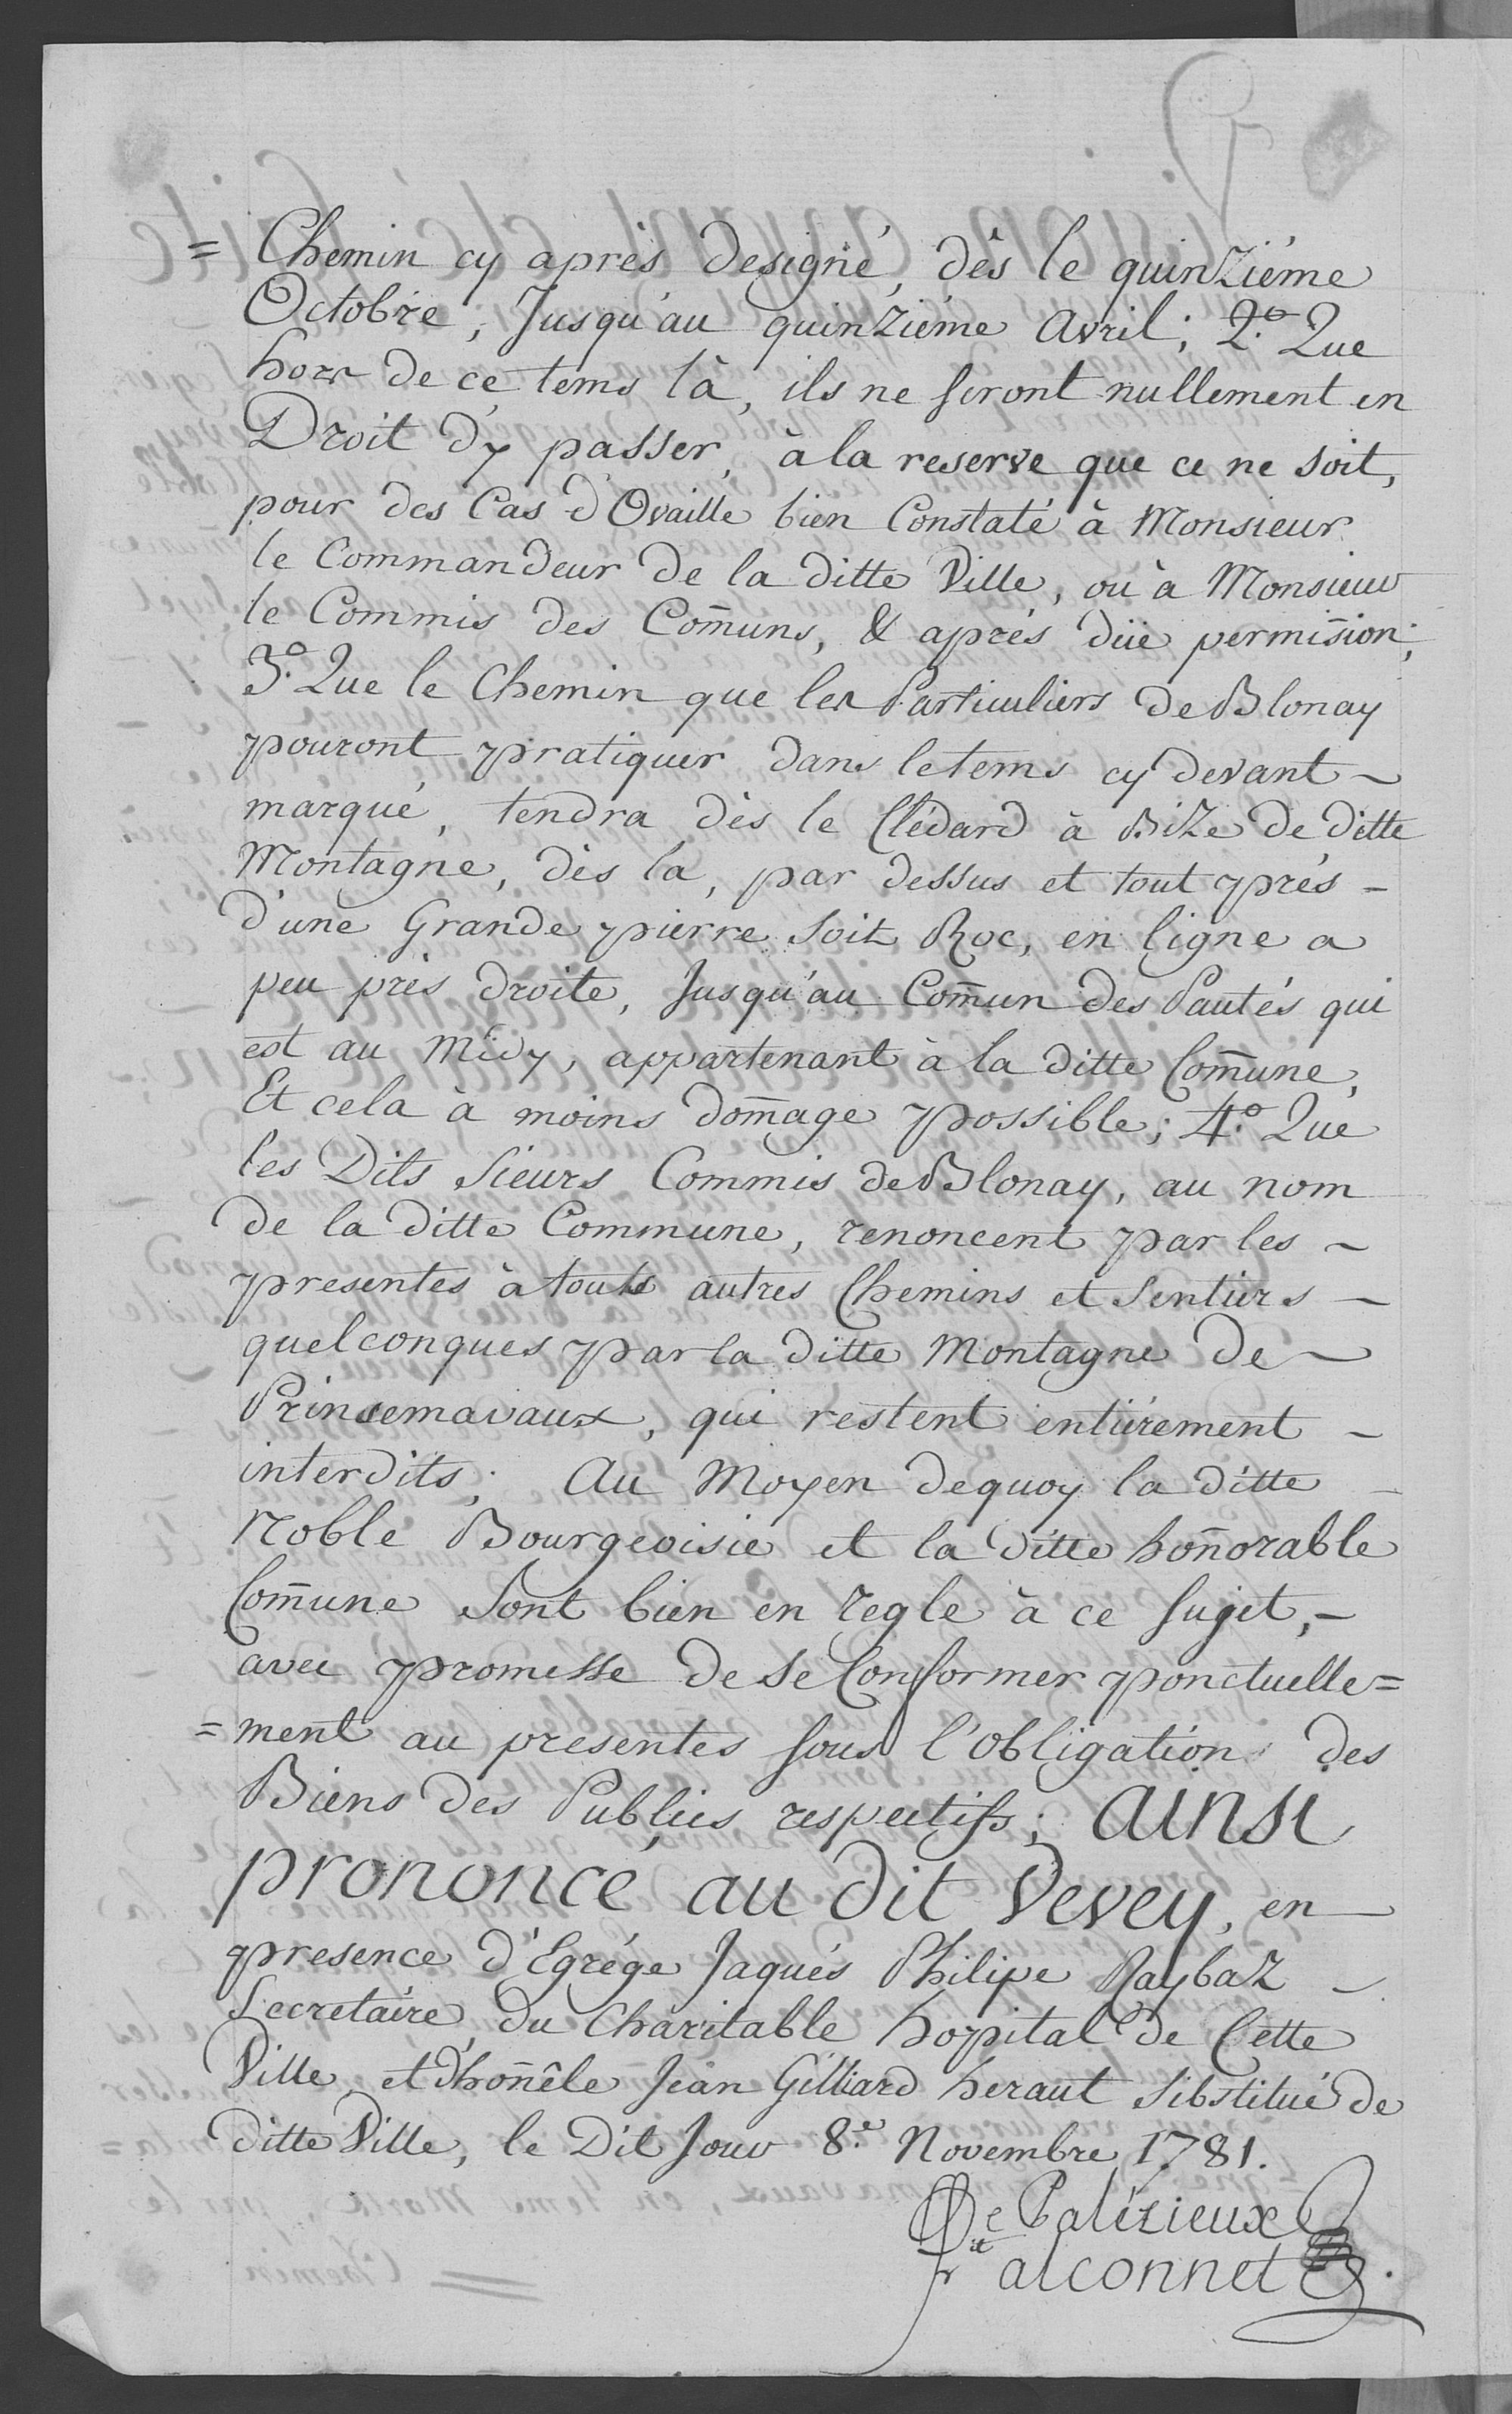 = Chemin cy aprés designé, dès le quinziéme
Octobre, Jusqu'au quinziéme Avril; 2.º Que
hors de ce tems là, ils ne seront nullement en
Droit d'y passer, à la reserve que ce ne soit,
pour des Cas d'Ovaille bien Constaté à Monsieur
le Commandeur de la ditte Ville, ou à Monsieur
le Commis des Com̃uns, & aprés düe permis̃ion;
3.º Que le Chemin que les Particuliers de Blonay
pouront pratiquer dans le tems cy devant ~
marqué, tendra dès le Clédard à Bize de ditte
Montagne, dès la, par dessus et tout prés -
d'une Grande pierre soit Roc, en ligne a
peu près droite, Jusqu'au Com̃un des Pautés qui
est au Midy, appartenant à la ditte Com̃une,
Et cela à moins dom̃age possible; 4.º Que
les Dits Sieurs Commis de Blonay, au nom
de la ditte Commune, renoncent par les ~
presentes à touts autres Chemins et Sentiers ~
quelconques par la ditte Montagne de ~
Prinsemavaux, qui restent entiérement -
interdits; Au Moyen dequoy la ditte -
Noble Bourgeoisie et la ditte hoñorable
Com̃une Sont bien en regle à ce sujet, -
avec promesse de se Conformer ponctuelle=
=ment au presentes sous l'obligation des
Biens des Publics respectifs; ainsi
prononcé au dit Vevey, en
presence d'Egrége Jaques Philipe Raybaz -
Secretaire du Charitable hopital de Cette
Ville, et d'hoñête Jean Gilliard heraut Sibstitué de
ditte Ville, le Dit Jour 8.e Novembre 1781.
De Palézieux
Falconnet
Chemin